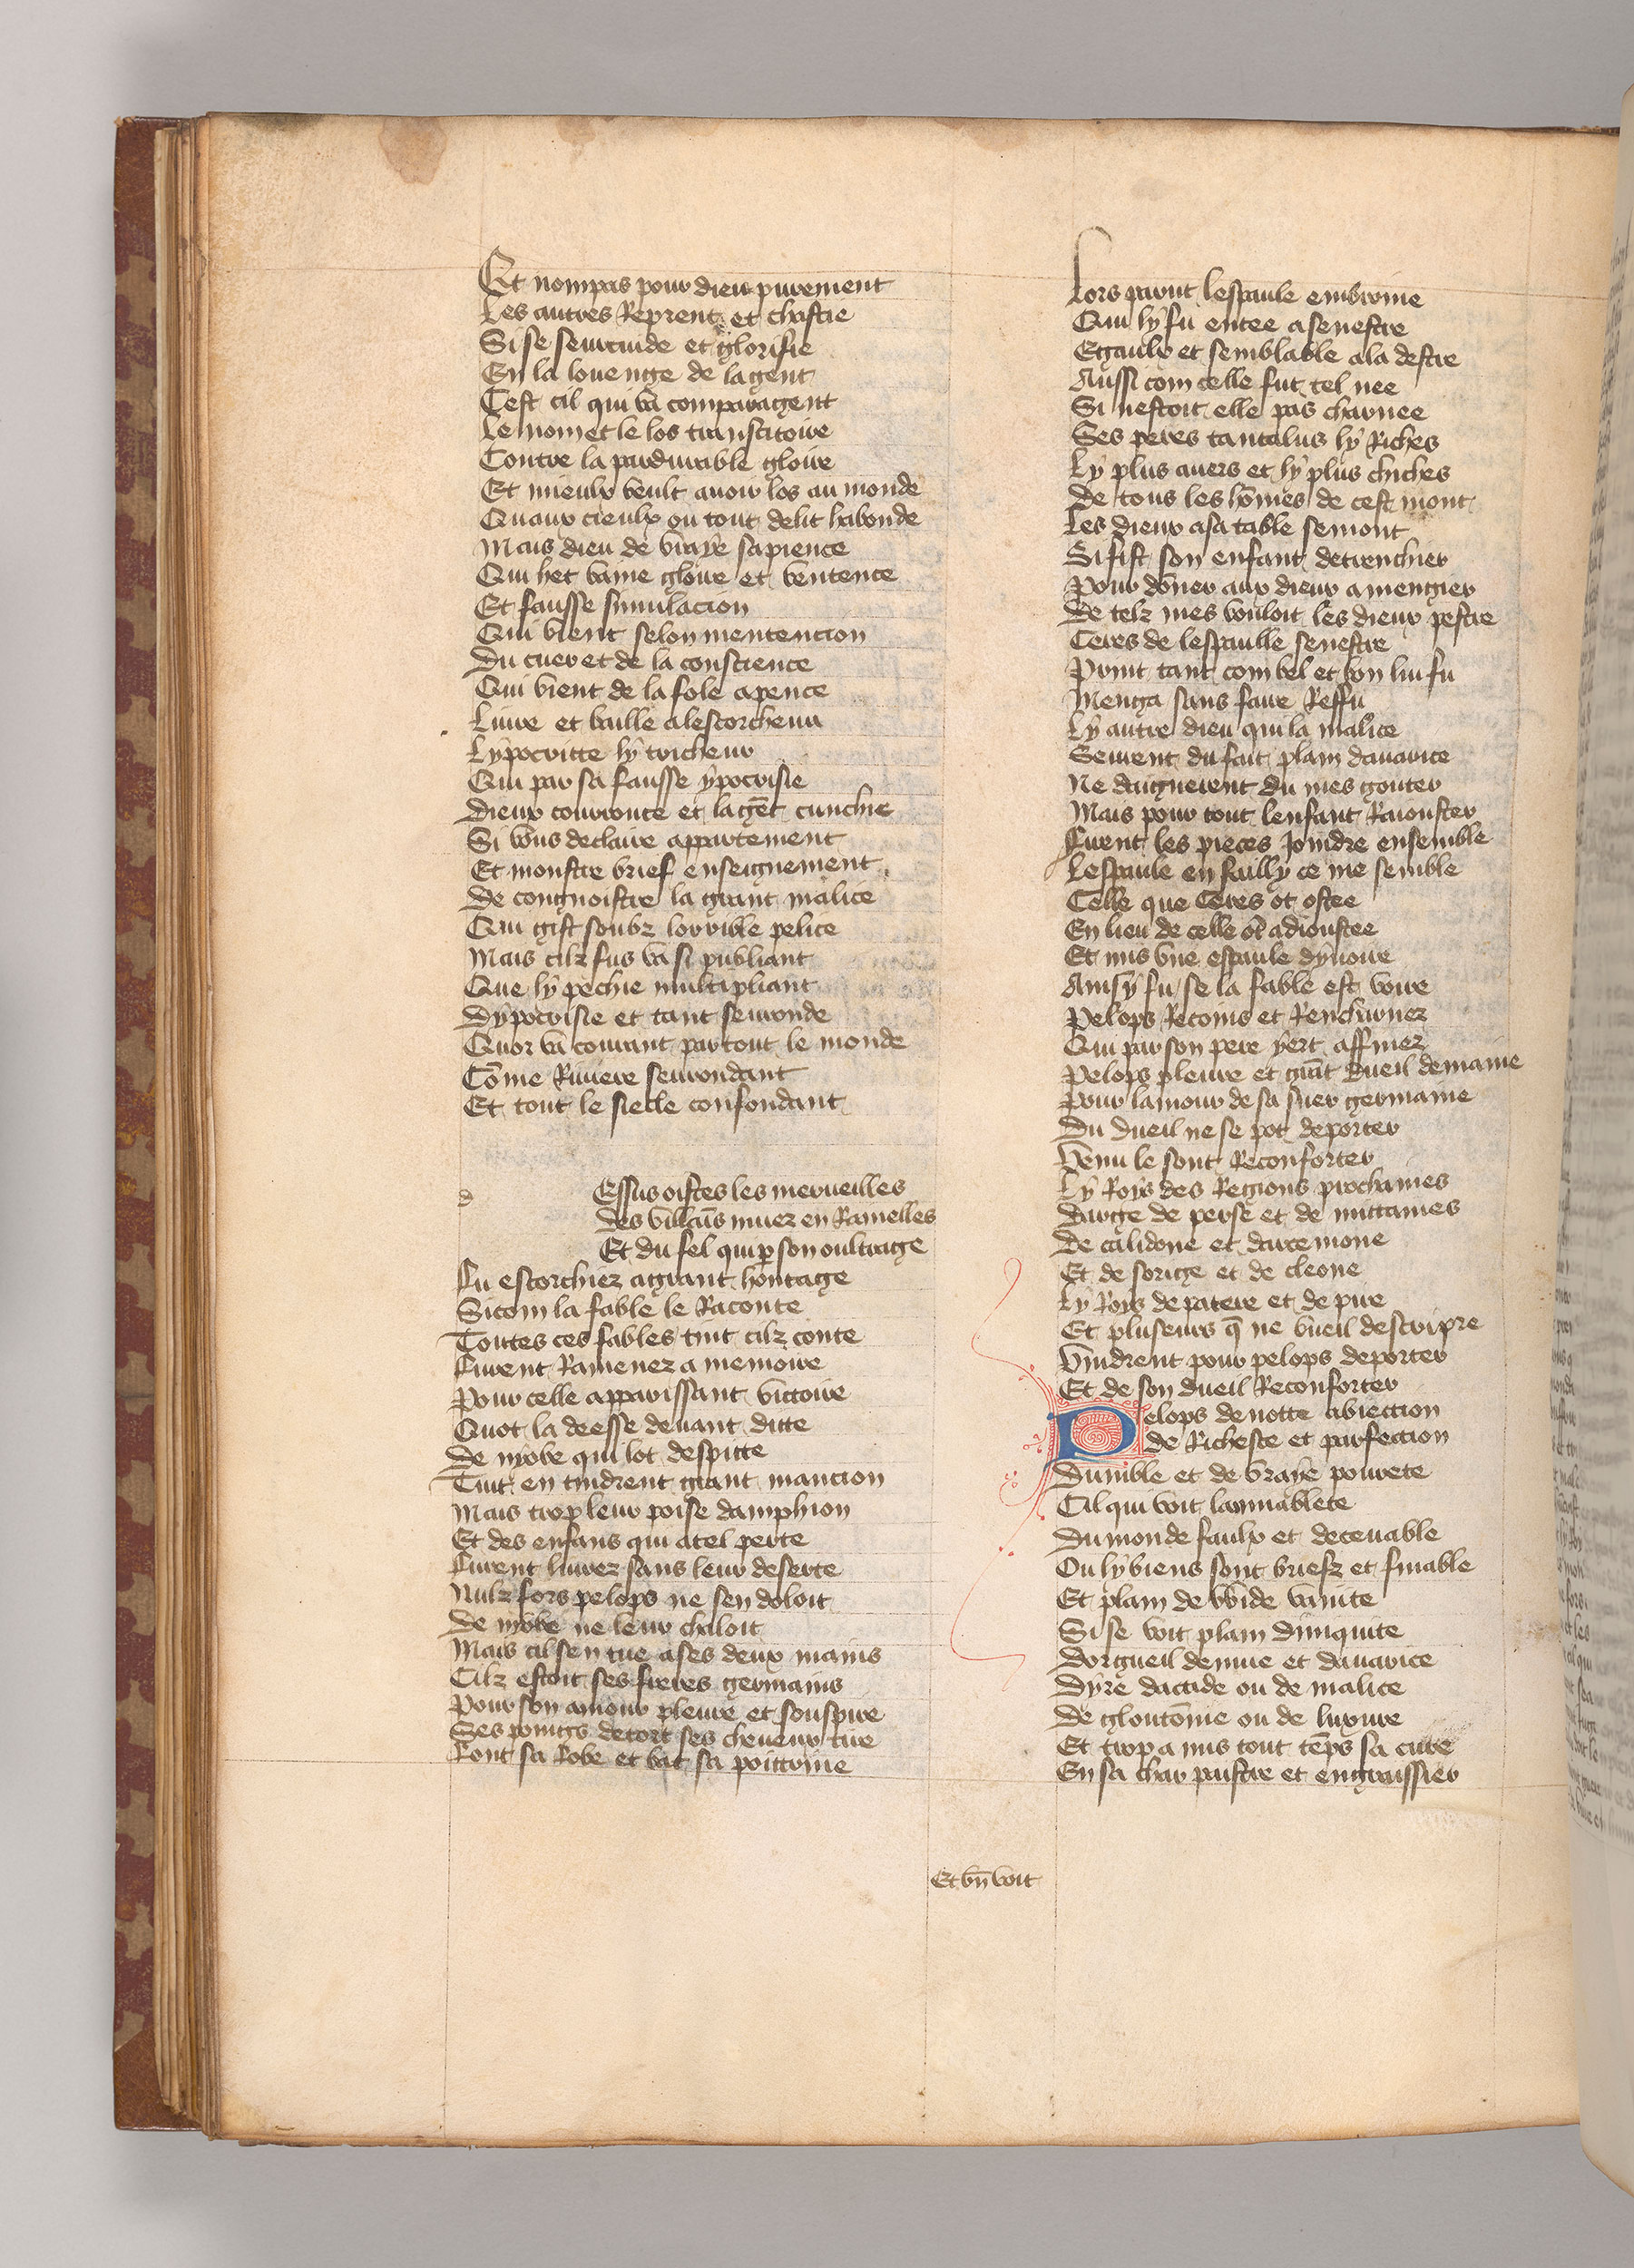 Et nompas pour dieu purement
Les autres Reprent et chastie
Si se seurcuide et glorifie
En la louenge de la gent
Cest cil qui va comparagent
Le nom et le los transitoire
Contre la pardurable gloire
Et mieulx veult auoir los au monde
Quaux cieulx ou tout delit habonde
Mais dieu de vraye sapience
Qui het vaine gloire et ventence
Et fausse simulacion
Qui vient selon mentencion
Du cuer et de la conscience
Qui vient de la fole apence
Liure et baille alescorcheur
Lypocritte ly tricheur
Qui par sa fausse ypocrisie
Dieux courrouce et la gēt cunchie
Si vous declaire appartement
Et monstre brief enseignement
De congnoistre la grant malice
Qui gist soubz lorrible pelice
Mais cilz fus va si publiant
Que ly pechie multipliant
Dypocrisie et tant seuronde
Quor va courant par tout le monde
Cōme Riuiere seurondant
Et tout le siecle confondant
d Essus oistes les merueilles
Des villais muez en Ramelles
Et du fel qui p son oultrage
Fu escorchiez agrant hontage
Sicom la fable le Raconte
Toutes ces fables tint cilz conte
Furent Ramenez a memoire
Pour celle apparissant victoire
Quot la deesse deuant ditte
De nyobe qui lot despitte
Tuit en tindrent grant mancion
Mais trop leur poise damphion
Et des enfans qui atel perte
Furent liurez sans leur deserte
Nulz fors pelops ne sen doloit
De nyobe ne leur chaloit
Mais cil sen tue ases deux mains
Cilz estoit ses freres germains
Pour son amour pleure et souspire
Ses poings detort ses cheueux tire
Ront sa Robe et bat sa poittrine
Lors parut lespaule embrome
Qui ly fu entee asenestre
Egaulx et semblable ala destre
Aussi com celle fut tel nee
Si nestoit elle pas charnee
Ses peres tantalus ly Riches
Ly plus auers et ly plus chiches
De tous les hōmes de cest mont
Les dieux asa table semont
Si fist son enfant detrenchier
Pour dōner aux dieux a mengier
De telz mes vouloit les dieux pestre
Ceres de lespaulle senestre
Print tant com bel et bon lui fu
Menga sans faire Reffu
Ly autre dieu qui la malice
Seurent du fait plain dauarice
Ne daignerent du mes gouter
Mais pour tout lenfant Raiouster
Firent les pieces Joindre ensemble
Lespaule en failly ce me semble
Celle que Ceres ot ostee
En lieu de celle ōt adioustee
Et mis vne espaule dyuoire
Ainsy fu se la fable est voire
Pelops Recomis et Rencharnez
Qui par son pere yert affinez
Pelops pleure et grāt dueil demaine
Pour lamour de sa suer germaine
Du dueil ne se pot deporter
Venu le sont Reconforter
Ly Roys des Regions prochaines
Darge de perse et de mittaines
De calidone et darcemone
Et de sorige et de cleone
Ly Roys de patere et de pire
Et pluseurs q̄ ne vueil descripre
Vindrent pour pelops deporter
Et de son dueil Reconforter
Pelops denotte abiection
de Richesce et parfection
Dumble et de vraye pourete
Cil qui voit lamiablete
Du monde faulx et deceuable
Ou ly biens sont briefz et finable
Et plain de wide vanite
Si se voit plain diniquite
Dorgueil denuie et dauarice
Dyre daccide ou de malice
De gloutōnie ou de luxure
Et trop a mis tout tēps sa cure
En sa char paistre et engraissier
Et bn̄ voit